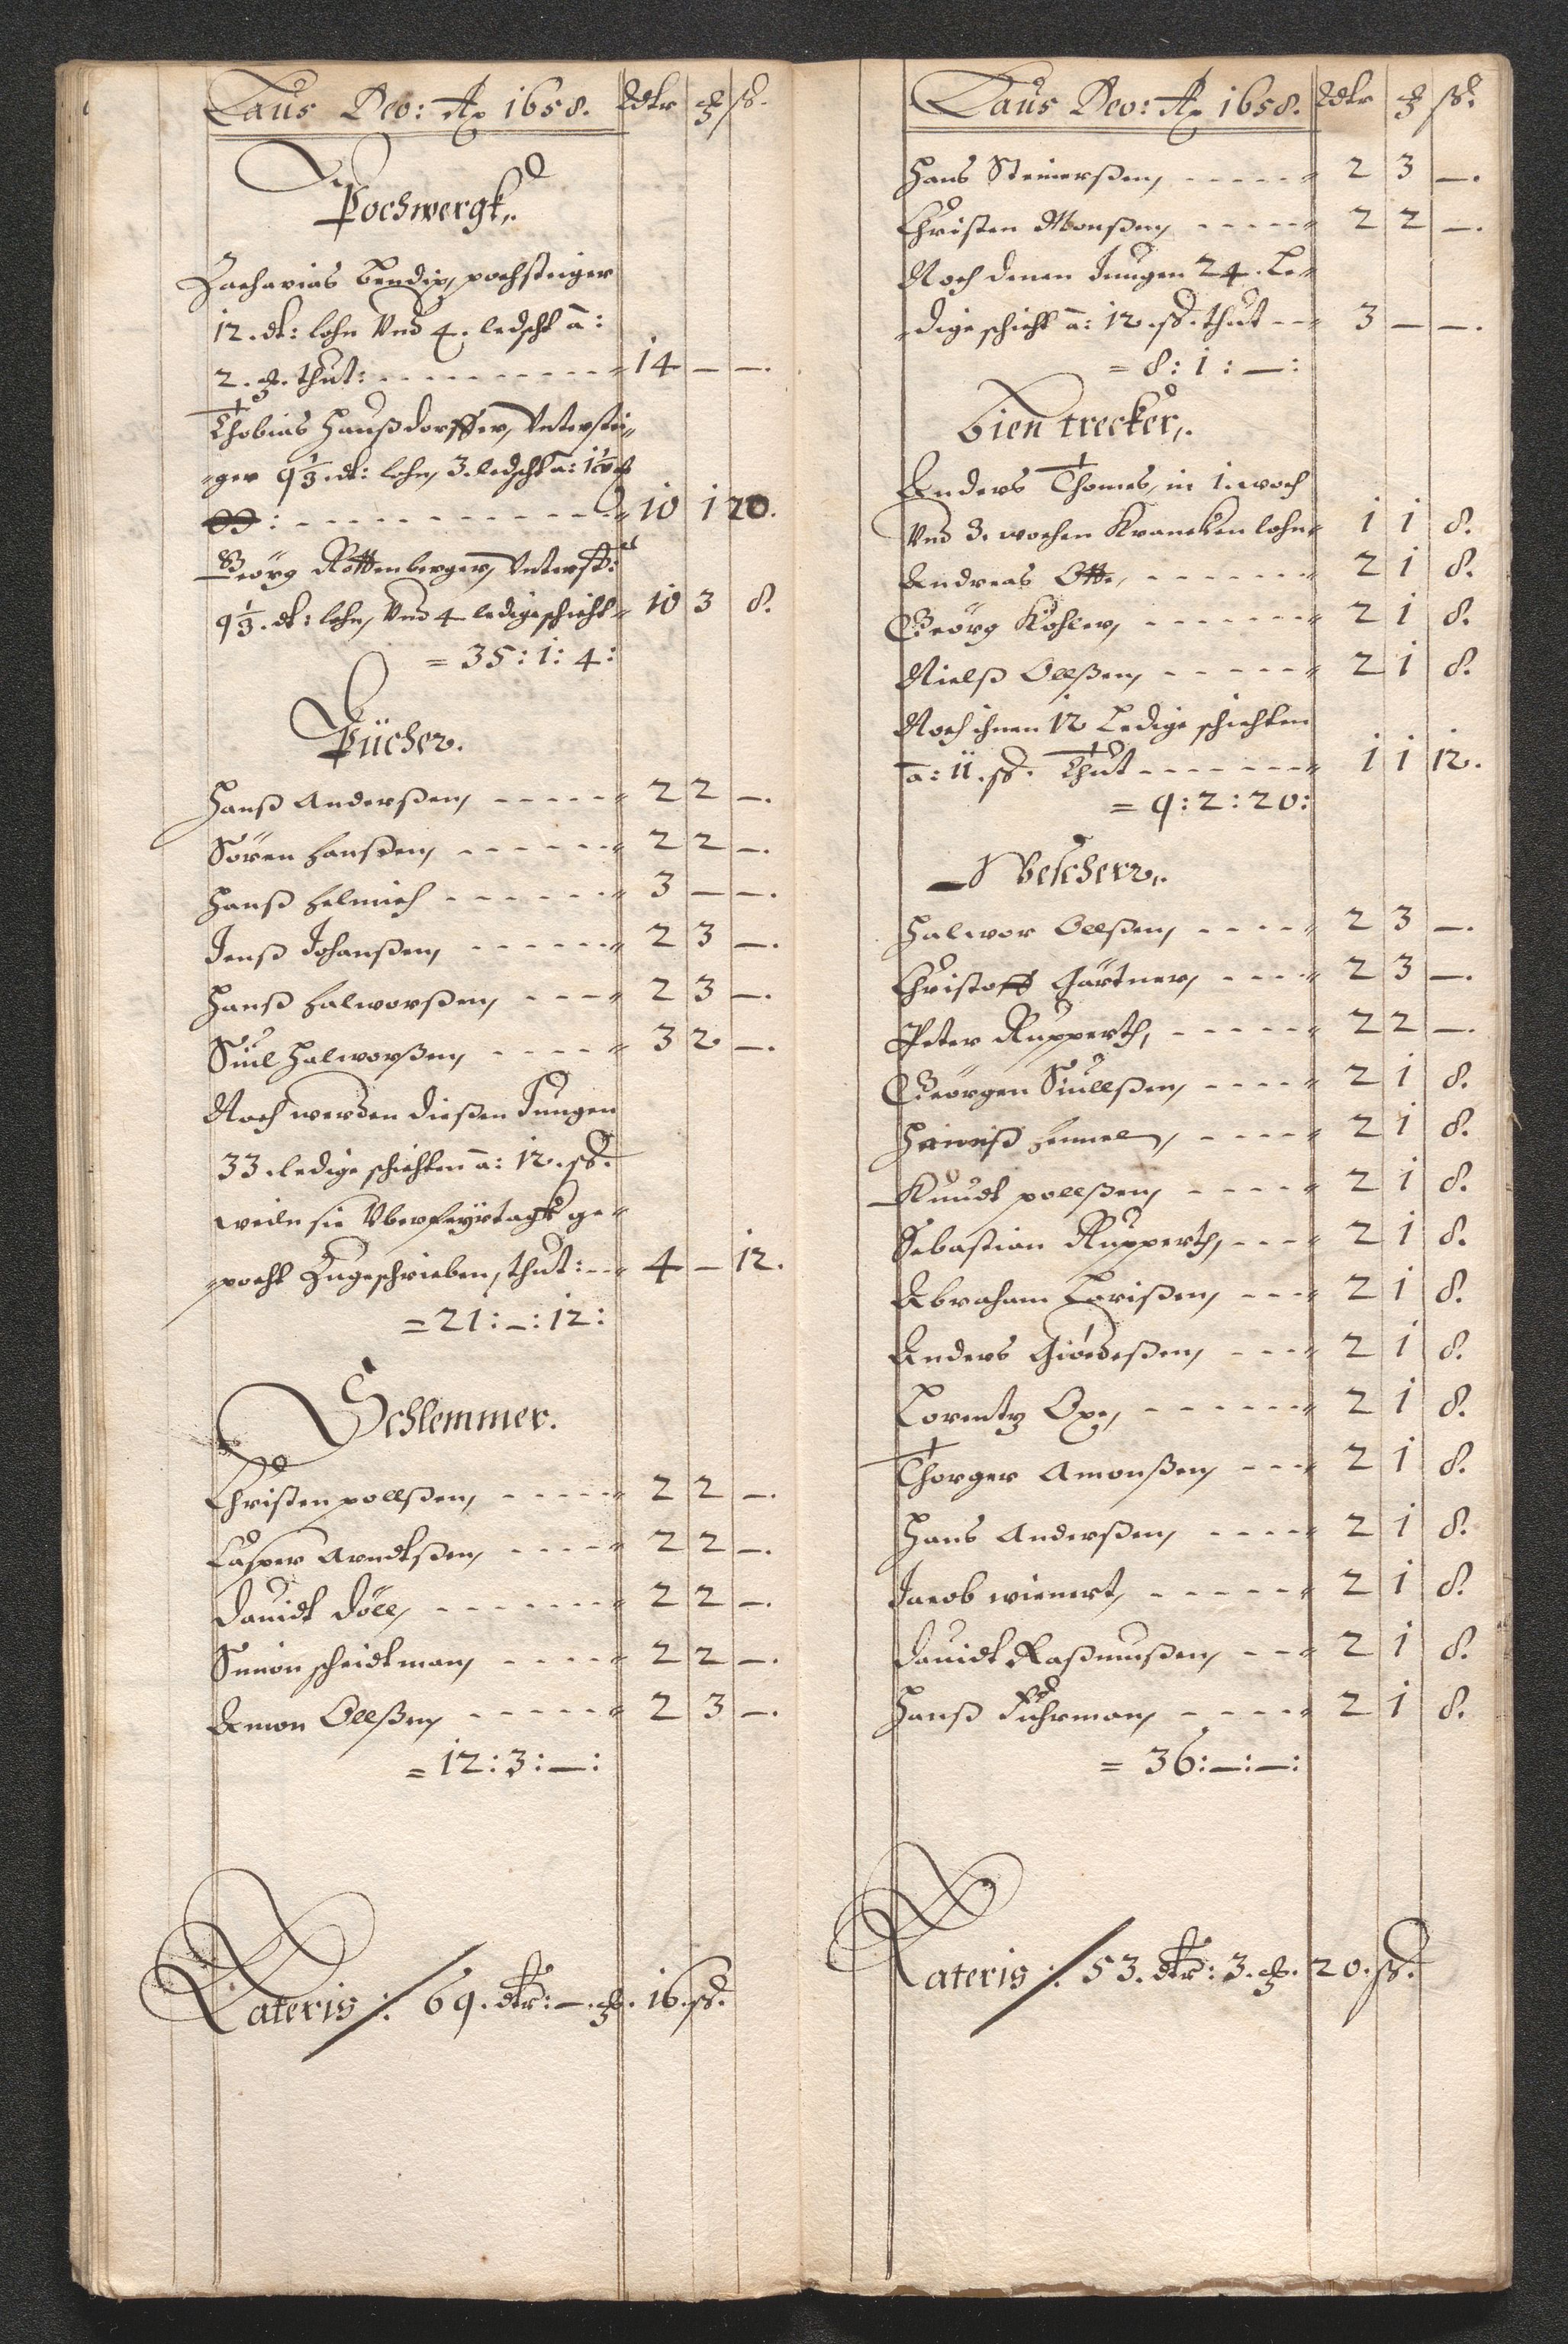 Laus Deo: Ao 1658. Rdlr ß.
Pochwergk.
Zacharias Bendix, pochsteiger
12. dl: lohn Vnd 4. ledscht â:
2. thut: 14 — —.
Thobias Haußdorffer, Vnterstei-
ger 9 1/3. dl: lohn, 3. ledscht a: 1 1/2
: 10 1 20.
Georg Rottenberger, Vnterst:
9 1/3. dl: lohn, Vnd 4 ledige schicht 10 3 8.
= 35: 1: 4:
Pücher.
Hanß Anderßen, 2 2 —.
Sören Hanßen, 2 2 —.
Hanß Helmich 3 — —.
Jenß Johanßen, 2 3 —.
Hanß Halworßen, 2 3 —.
Siul Halworßen, 3 2 —.
Noch werden dießen Jungen
33. ledige schichten â: 12. ß.
weiln sie Vber feyrtagk ge-
pocht Zugeschrieben, thut: 4 — 12.
= 21: —: 12:
Schlemmer.
Christen pollßen, 2 2 —.
Casper Arndtßen, 2 2 —.
Dauidt Döll, 2 2 —.
Simon scheidtman, 2 2 —.
Amon Ollßen, 2 3 —.
= 12: 3: —:
Lateris ./: 69. dlr: —. 16. ß.
Laus Deo: Ao 1658. Rdlr ß.
Hans Steinerßen, 2 3 —.
Christen Monßen, 2 2 —.
Noch denen Jungen 24. Le-
dige schicht â: 12. ß. thut 3 — —.
= 8: 1: —:
Bientrecker.
Anders Thomes, in 1. woch
Vnd 3. wochen Krancken lohn 1 1 8.
Andreas Otte, 2 1 8.
Georg Kohler, 2 1 8.
Nielß Ollßen, 2 1 8.
Noch ihnen 12 Ledige schichten
â: 11. ß. Thut 1 1 12.
= 9: 2: 20:
Wescherr.
Halwor Ollßen, 2 3 —.
Christoff Gärtner, 2 3 —.
Peter Rupperth, 2 2 —.
Georgen Siullßen, 2 1 8.
Hemel, 2 1 8.
Knudt pollßen, 2 1 8.
Sebastian Rupperth, 2 1 8.
Abraham Larißen, 2 1 8.
Anders Giödeßen, 2 1 8.
Lorentz Oxe, 2 1 8.
Thorger Amonßen, 2 1 8.
Hans Anderßen, 2 1 8.
Jacob wienert, 2 1 8.
Dauidt Raßmußen, 2 1 8.
Hanß Fuhrman, 2 1 8.
= 36: —: —:
Lateris ./: 53. dlr: 3. 20. ß.